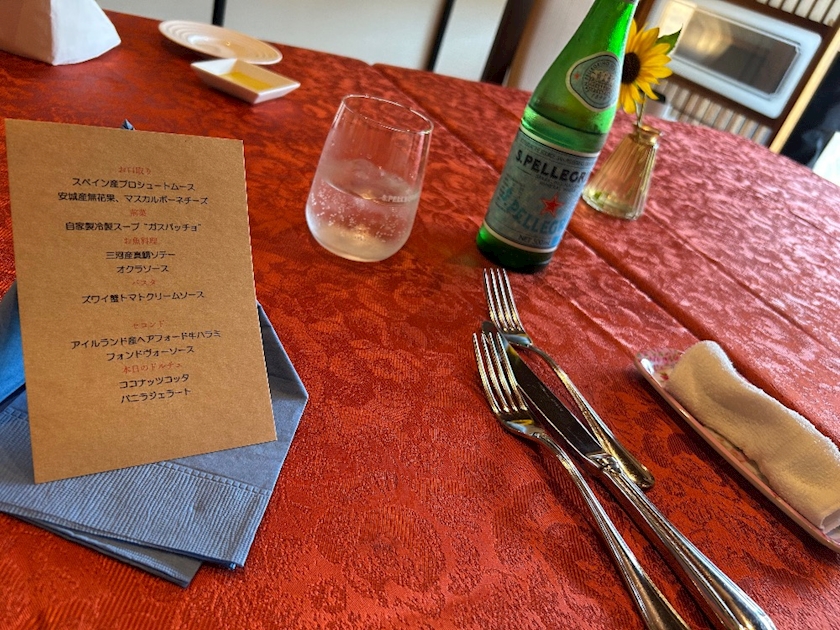 お口取り
スペイン産プロシュートムース
安城産無花果、マスカルポーネチーズ
前菜
自家製冷製スープ “ガスパッチョ”
お魚料理
三河産真鯛ソテー
オクラソース
パスタ
ズワイ蟹トマトクリームソース
セコンド
アイルランド産ヘアフォード牛ハラミ
フォンドヴォーソース
本日のドルチェ
ココナッツコッタ
バニラジェラート
S.PELLEGRI
S.PELLEGRI